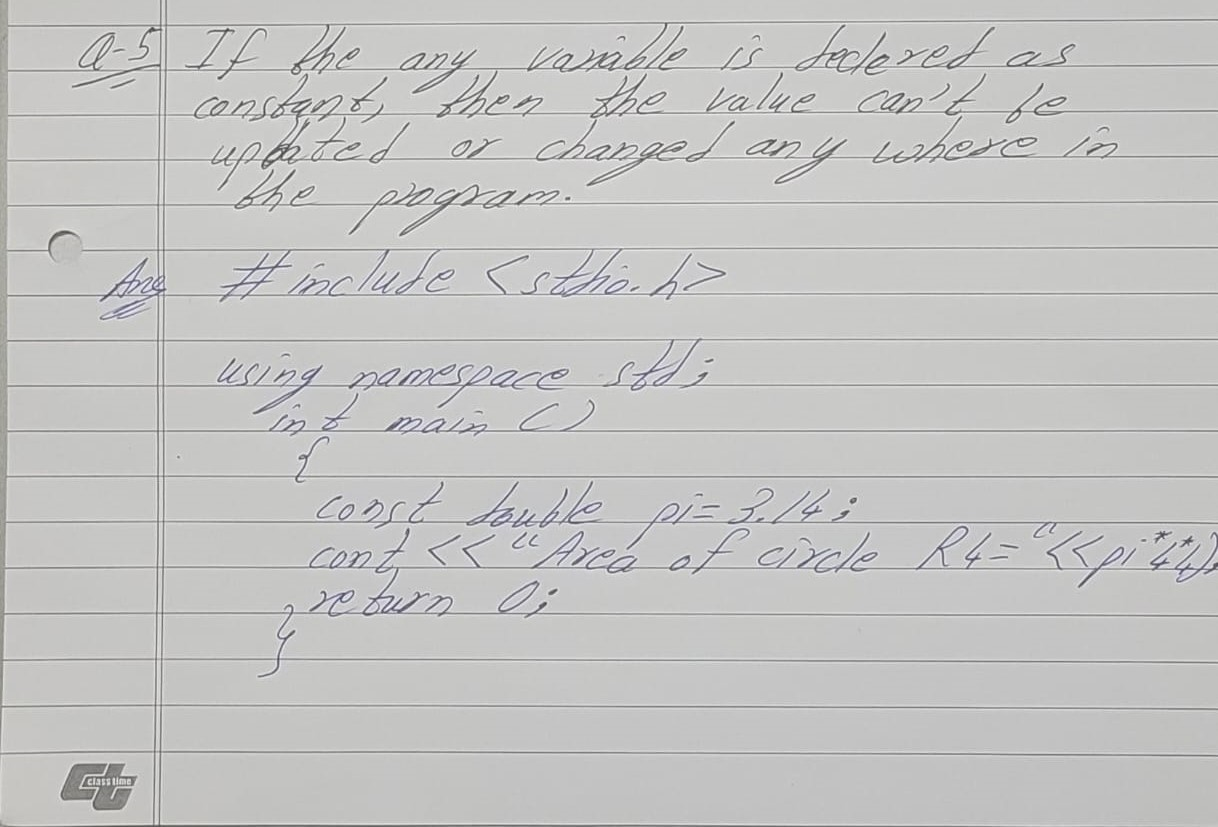 Q-5 If the any variable is declered as
constant, then the value can't be
updated or changed any where in
the program.
Ans # include <stdio.h>
using namespace std;
int main ()
{
const double pi = 3.14;
cout << "Area of circle R4= "<<pi*4*4;
return 0;
}
class time